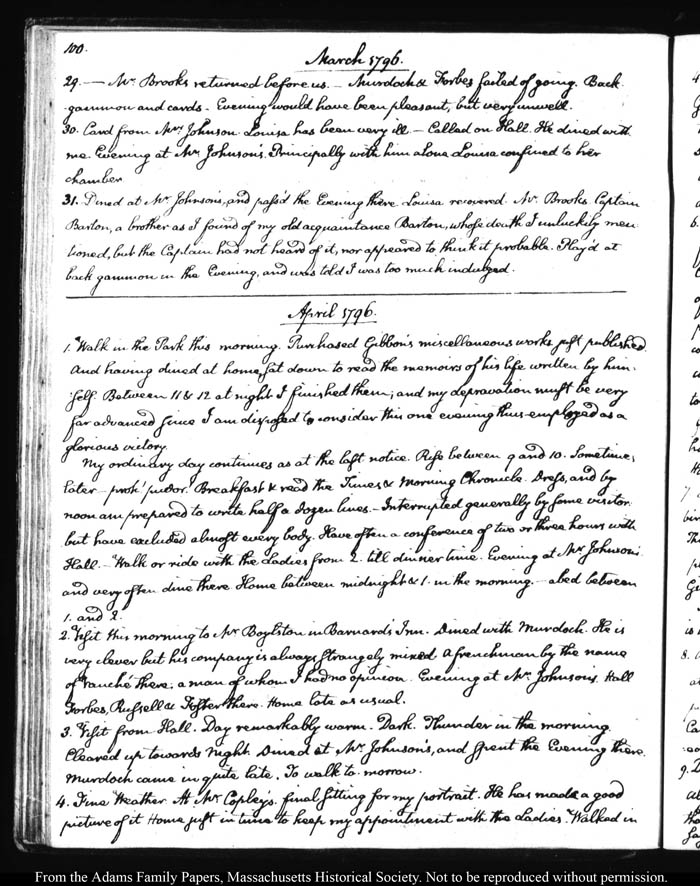 100.
March 1796.
29. — Mr. Brooks returned before us. — Murdoch & Forbes failed of going. Back-
gammon and cards - Evening would have been pleasant, but very unwell.
30. Card from Mrs. Johnson. Louisa has been very ill — Called on Hall. He dined with
me. Evening at Mr. Johnson's. Principally with him alone Louisa confined to her
chamber
31. Dined at Mr. Johnson's, and pass'd the Evening there. Louisa recovered. Mr. Brooks. Captain
Barton, a brother as I found of my old acquaintance Barton, whose death I unluckily men-
tioned, but the Captain had not heard of it, nor appeared to think it probable. Play'd at
back gammon in the Evening, and was told I was too much indulged.
April 1796.
1. Walk in the Park this morning. Purchased Gibbon's miscellaneous works just published.
And having dined at home, sat down to read the memoirs of his life written by him-
self. Between 11 & 12 at night I finished them; and my depravation must be very
far advanced since I am disposed to consider this one evening thus employed as a
glorious victory.
My ordinary day continues as at the last notice. Rise between 9 and 10. Sometimes
later — proh! pudor! Breakfast & read the Times & Morning Chronicle. Dress, and by
noon am prepared to write half a dozen lines. — Interrupted generally by some visitor.
but have excluded almost every body. Have often a conference of two or three hours with
Hall. — Walk or ride with the Ladies from 2. till dinner time. Evening at Mr Johnson's
and very often dine there Home between midnight & 1. in the morning. — abed between
1. and 2.
2. Visit this morning to Mr Boylston in Barnard's Inn. Dined with Murdoch. He is
very clever but his company is always strangely mixed. A frenchman by the name
of there; a man of whom I had no opinion. Evening at Mr. Johnson's. Hall
Forbes, Russell & Foster there. Home late as usual.
3. Visit from Hall. Day remarkably warm. Dark. Thunder in the morning
Cleared up towards Night. Dined at Mr. Johnson's, and spent the Evening there.
Murdoch came in quite late. To walk to-morrow.
4. Fine Weather. At Mr Copley's. final sitting for my portrait. He has made a good
picture of it Home just in time to keep my appointment with the Ladies. Walked in
From the Adams Family Papers, Massachusetts Historical Society. Not to be reproduced without permission.